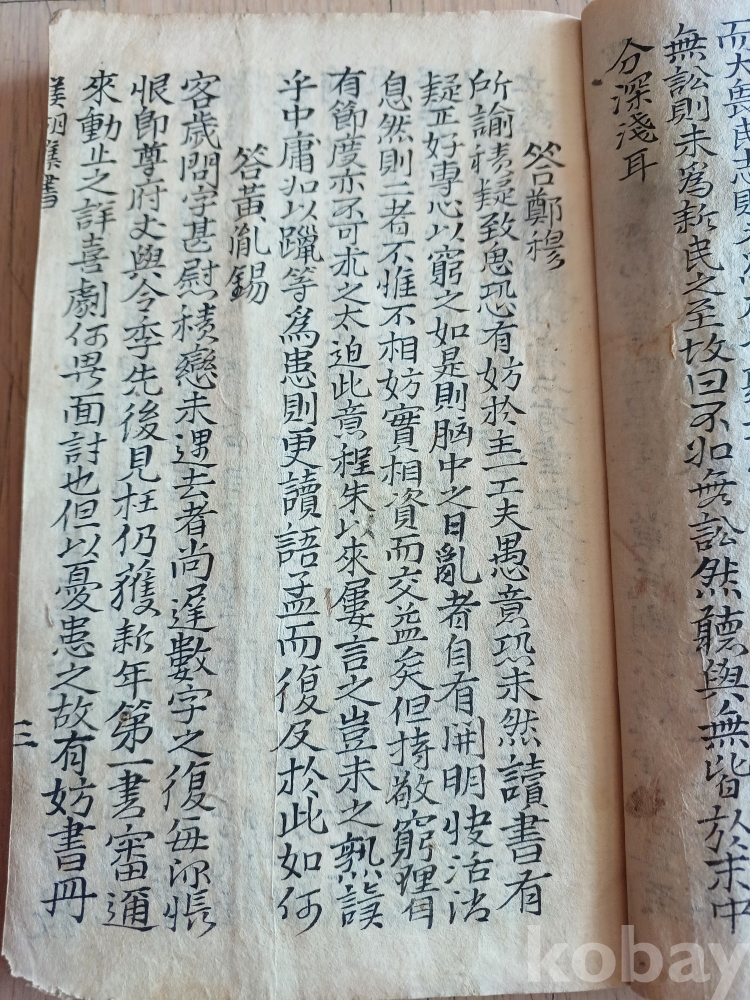 無訟則未為新民之至故曰不如無訟然聽與無皆於末中
分深淺耳
答鄭穆
所諭積疑致思恐有妨於主一工夫愚意恐未然讀書有
疑正好專心以窮之如是則腦中之日亂者自有開明快活消
息然則二者不惟不相妨實相資而交益矣但持敬窮理自
有節度亦不可求之太迫此意程朱以來屢言之豈未之熟誤
乎中庸如以躐等為患則更讀語孟而復及於此如何
答黃胤錫
客歲問字甚慰積戀未遇去者尚遲數字之復每深悵
恨即尊府丈與令季先後見枉仍獲新年第一書審邇
來動止之詳喜劇何異面討也但以憂患之故有妨書冊
三
kobay